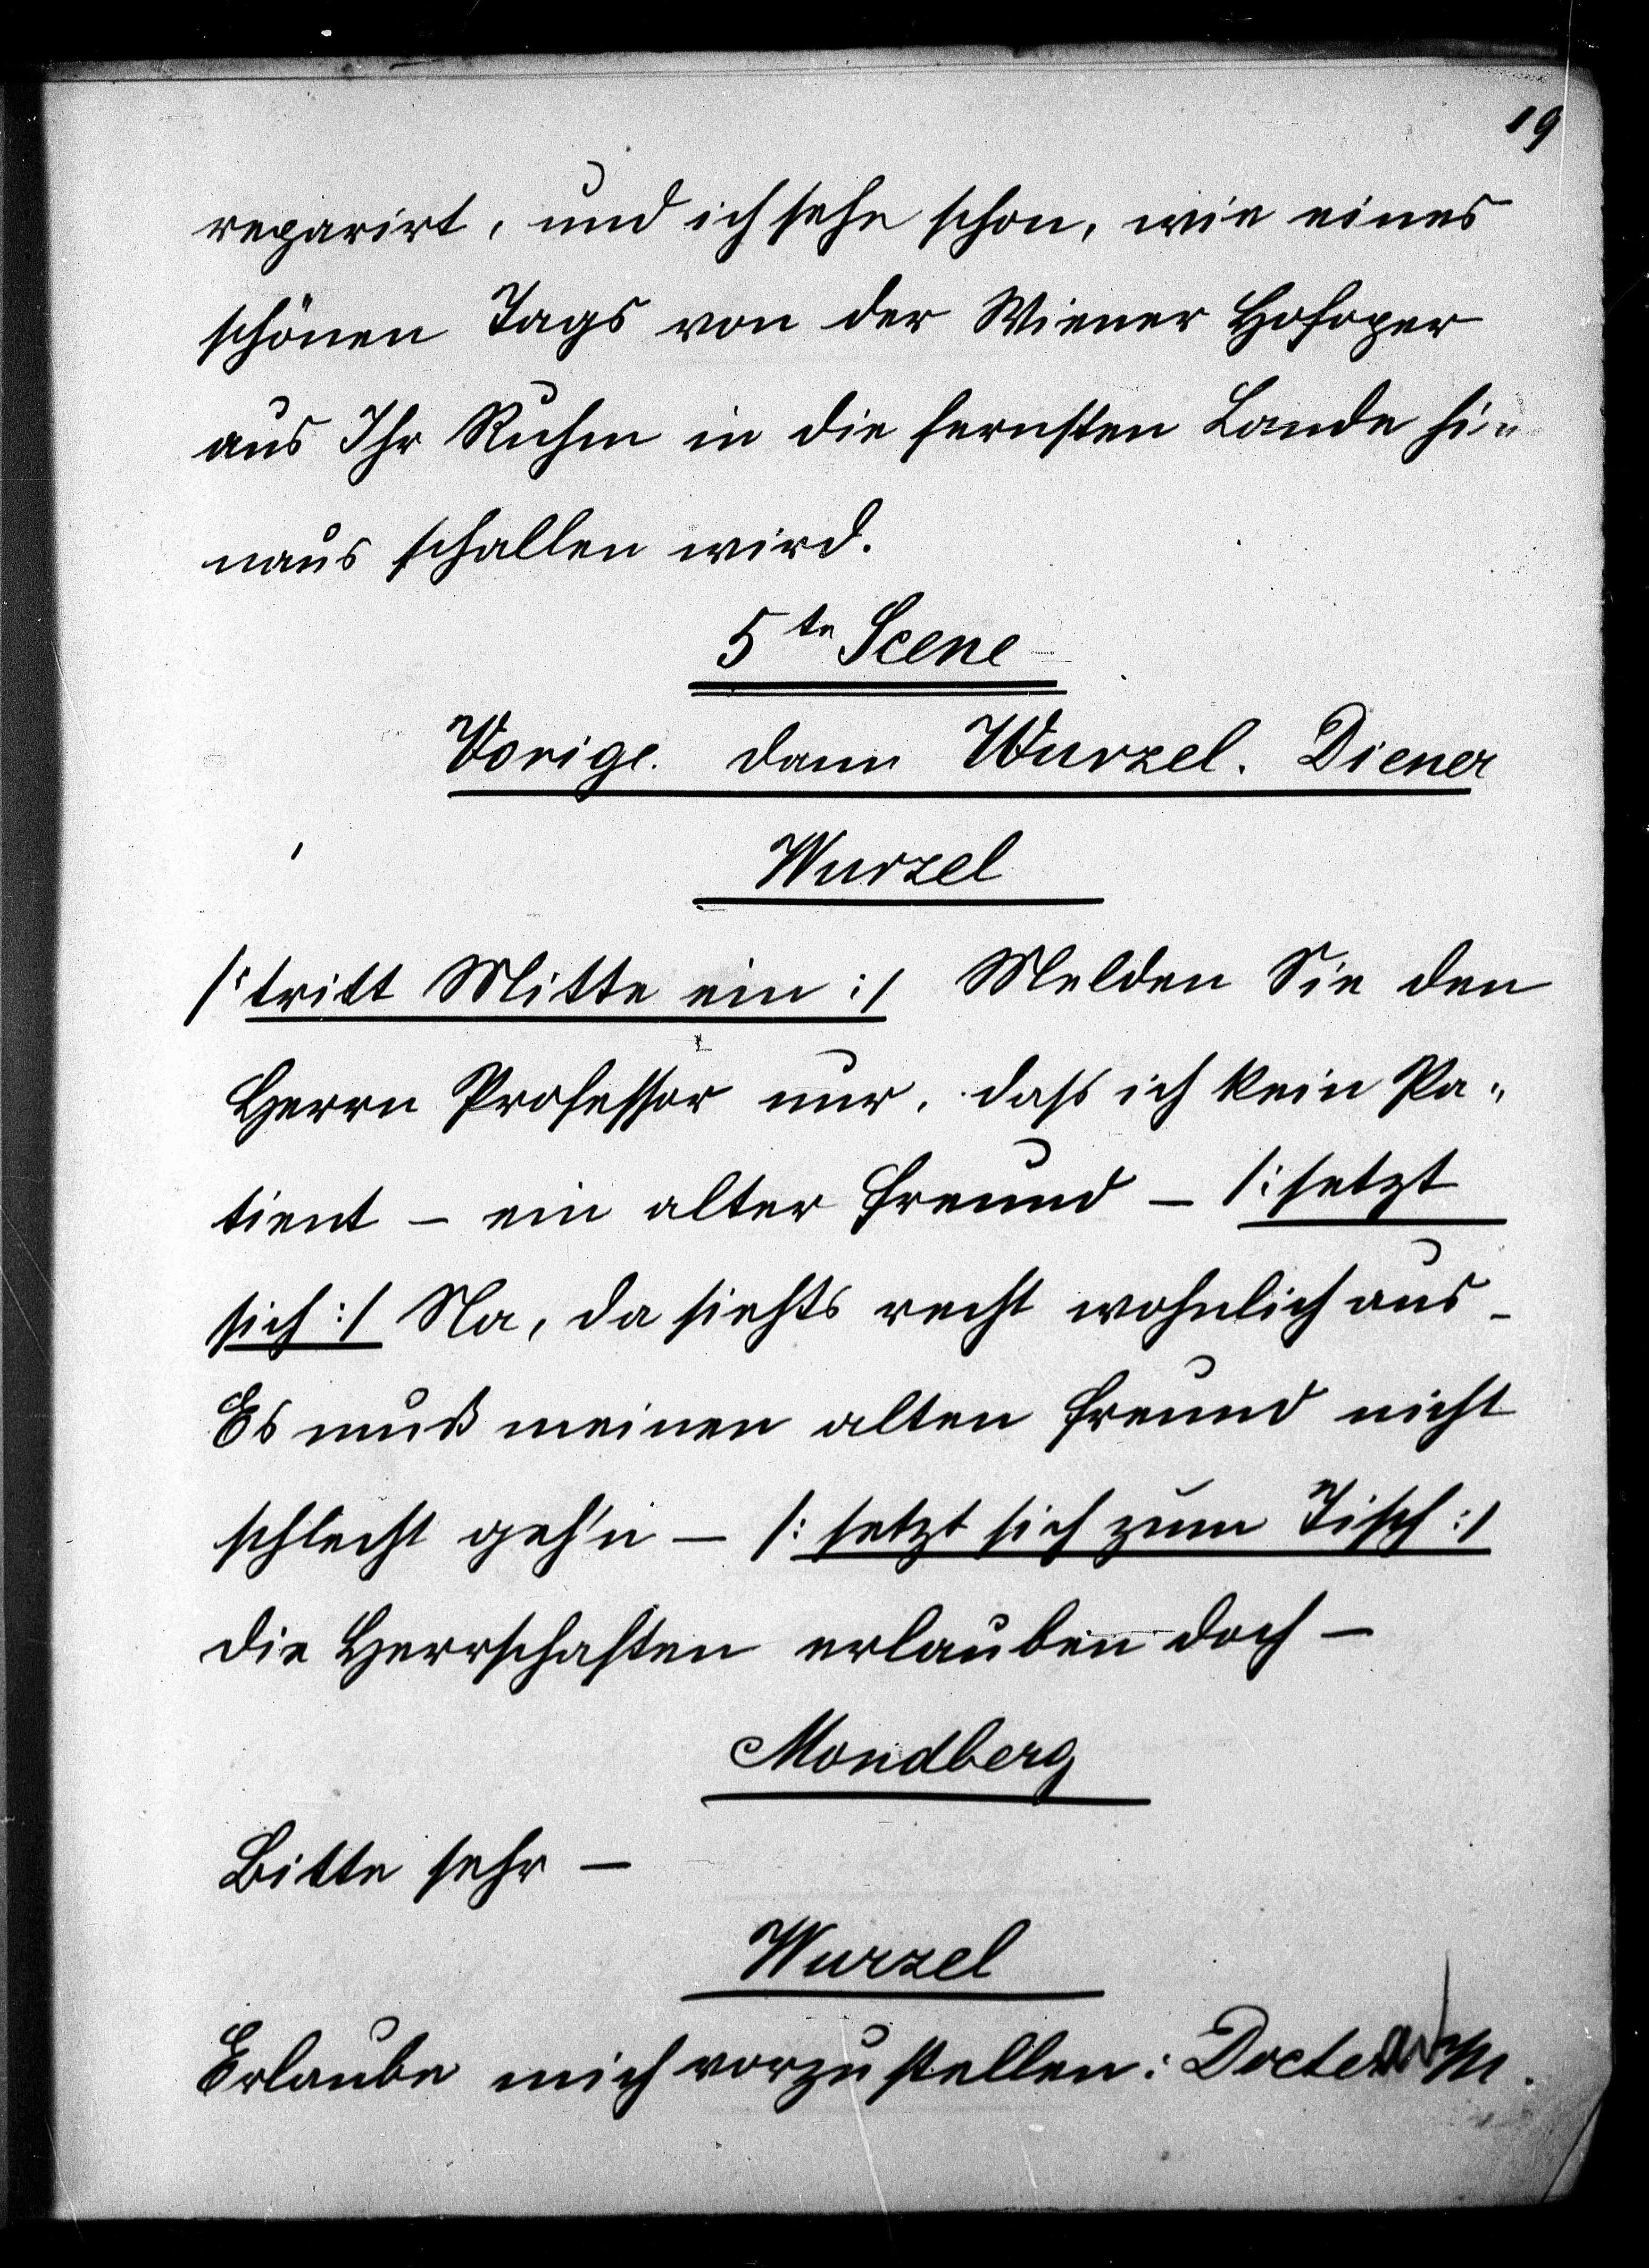 19
reparirt, und ich sehe schon, wie eines
schönen Tags von der Wiener Hofoper
aus Ihr Ruhm in die fernsten Lande hi-
naus schallen wird.
5te Scene
Vorige. dann Wurzel. Diener
Wurzel
/: tritt Mitte ein :/ Melden Sie den
Herrn Professor nur, daß ich kein Pa-
tient – ein alter Freund – /: setzt
sich :/ Na, da siehts recht wohnlich aus –
Es muß meinen alten Freund nicht
schlecht geh'n – /: setzt sich zum Tisch :/
die Herrschaften erlauben doch –
Mondberg
Bitte sehr –
Wurzel
Erlaube mich vorzustellen: Docter